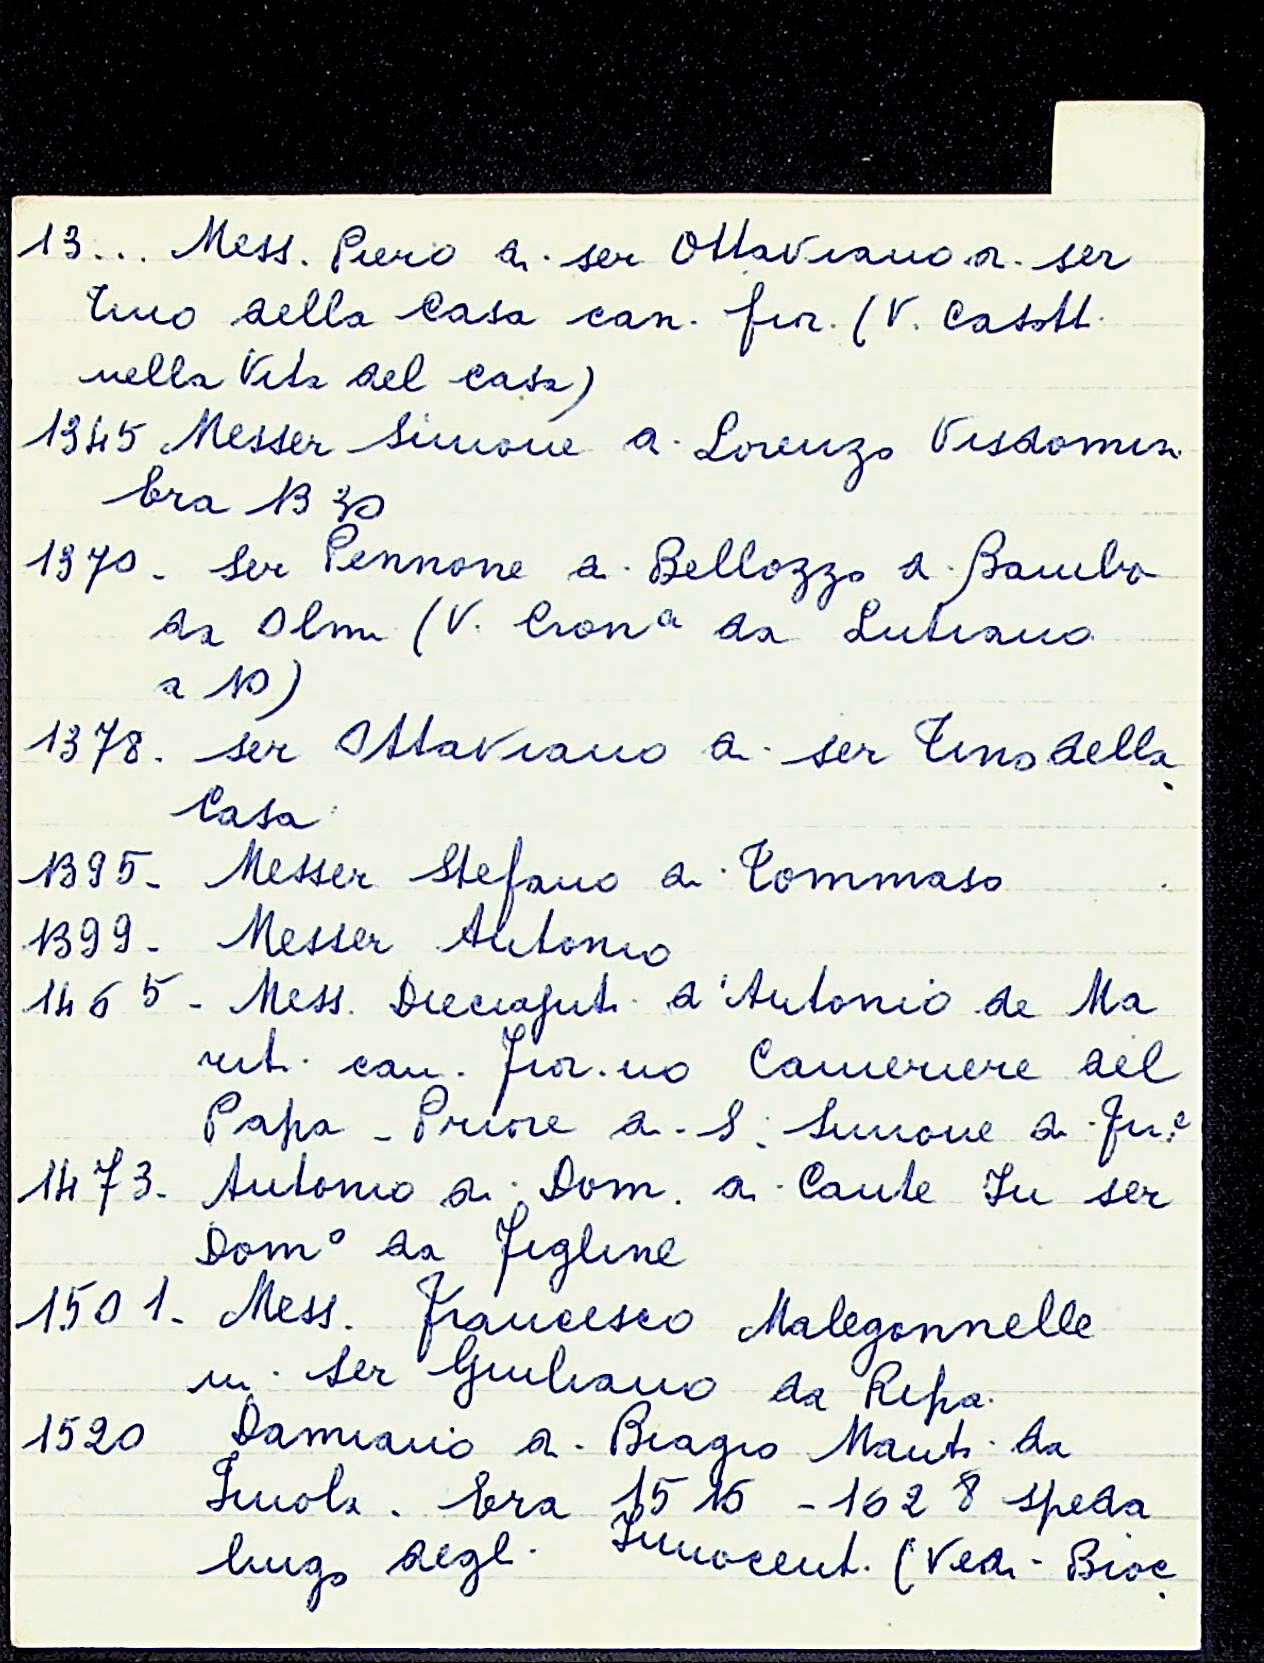 13... Mess. Piero di ser Ottaviano di ser
Tino della Casa can. fior. (V. Casotti
nella Vita del Casa)
1345 Messer Simone di Lorenzo Visdomini
Era 1330
1370 - ser Pennone di Bellozzo di Bambo
da Olmi (V. Cron^a da Lutiano
a 10)
1378. ser Ottaviano di ser Tino della
Casa
1395 - Messer Stefano di Tommaso
1399 - Messer Antonio
1465 - Mess. Dieciajuti d'Antonio de Ma
ruti can. Fior.no Cameriere del
Papa - Priore di S. Simone di Fir.e
1473 - Antonio di Dom. di Cante In ser
Dom° da Figline
1501 - Mess. Francesco Malegonnelle
in ser Giuliano da Ripa.
1520 Damiano di Biagio Manti da
Imola. Era 1515 - 1628 speda
lingo degli Innocenti (Vedi - Bioc